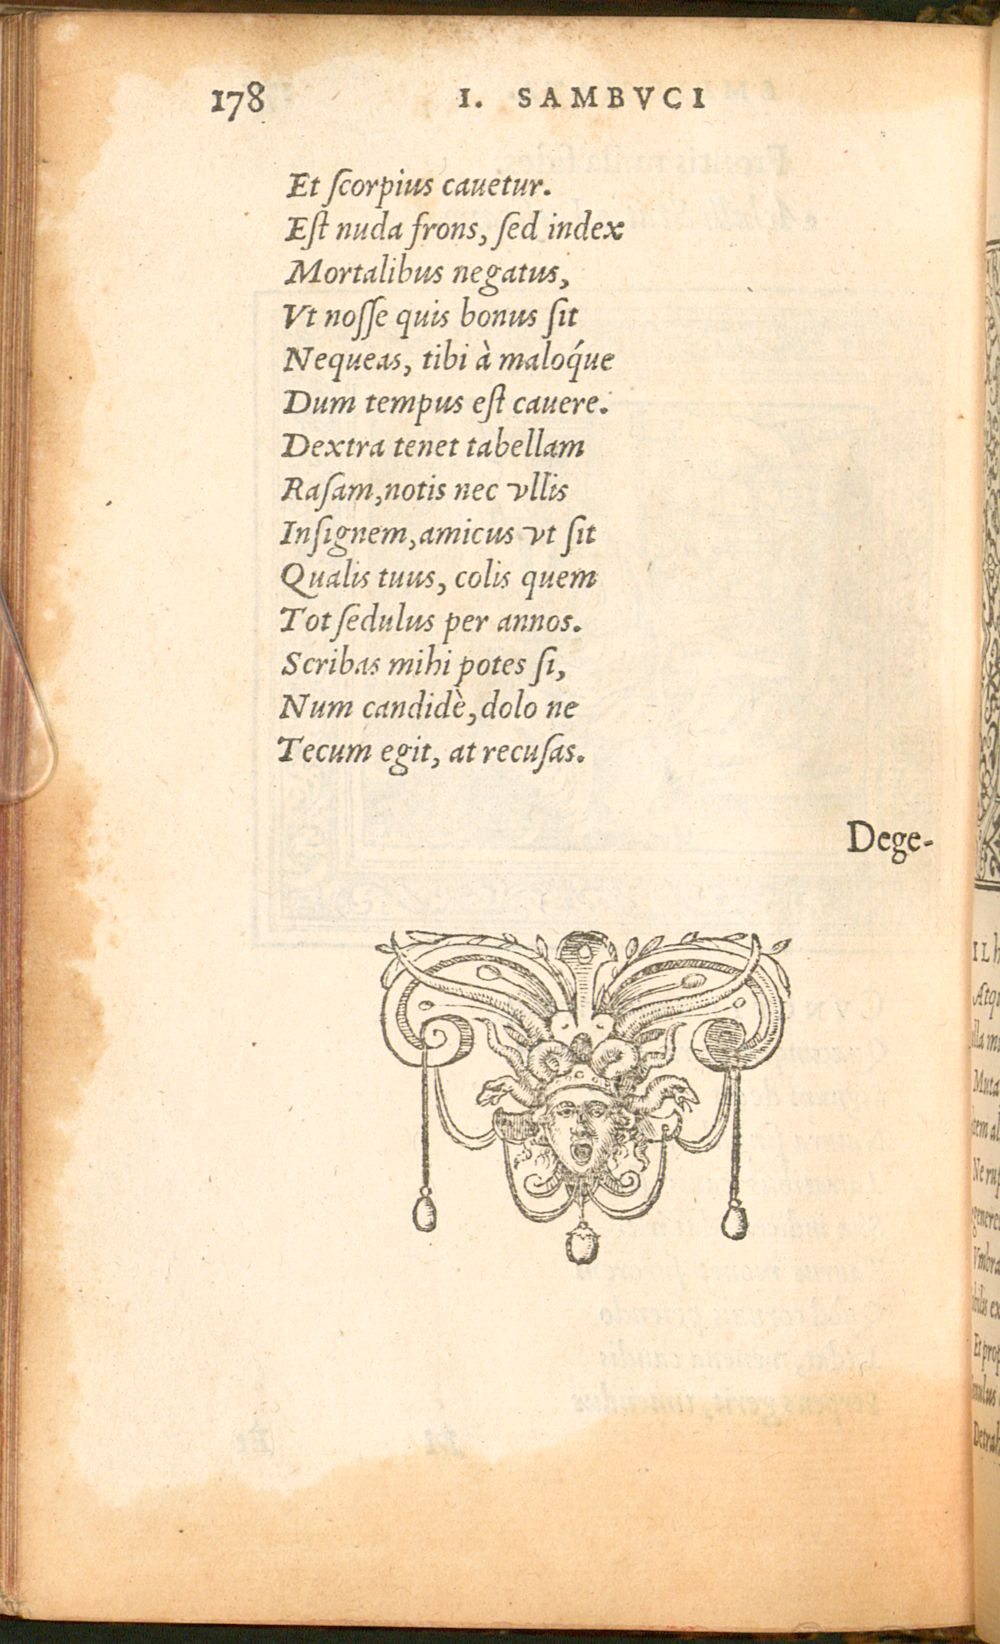 178 I. SAMBVCI
Et ſcorpius cauetur.
Eſt nuda frons, ſed index
Mortalibus negatus,
Vt noſſe quis bonus ſit
Nequeas, tibi à maloq́ue
Dum tempus eſt cauere.
Dextra tenet tabellam
Raſam, notis nec vllis
Inſignem, amicus vt ſit
Qualis tuus, colis quem
Tot ſedulus per annos.
Scribas mihi potes ſi,
Num candidè, dolo ne
Tecum egit, at recuſas.
Dege-